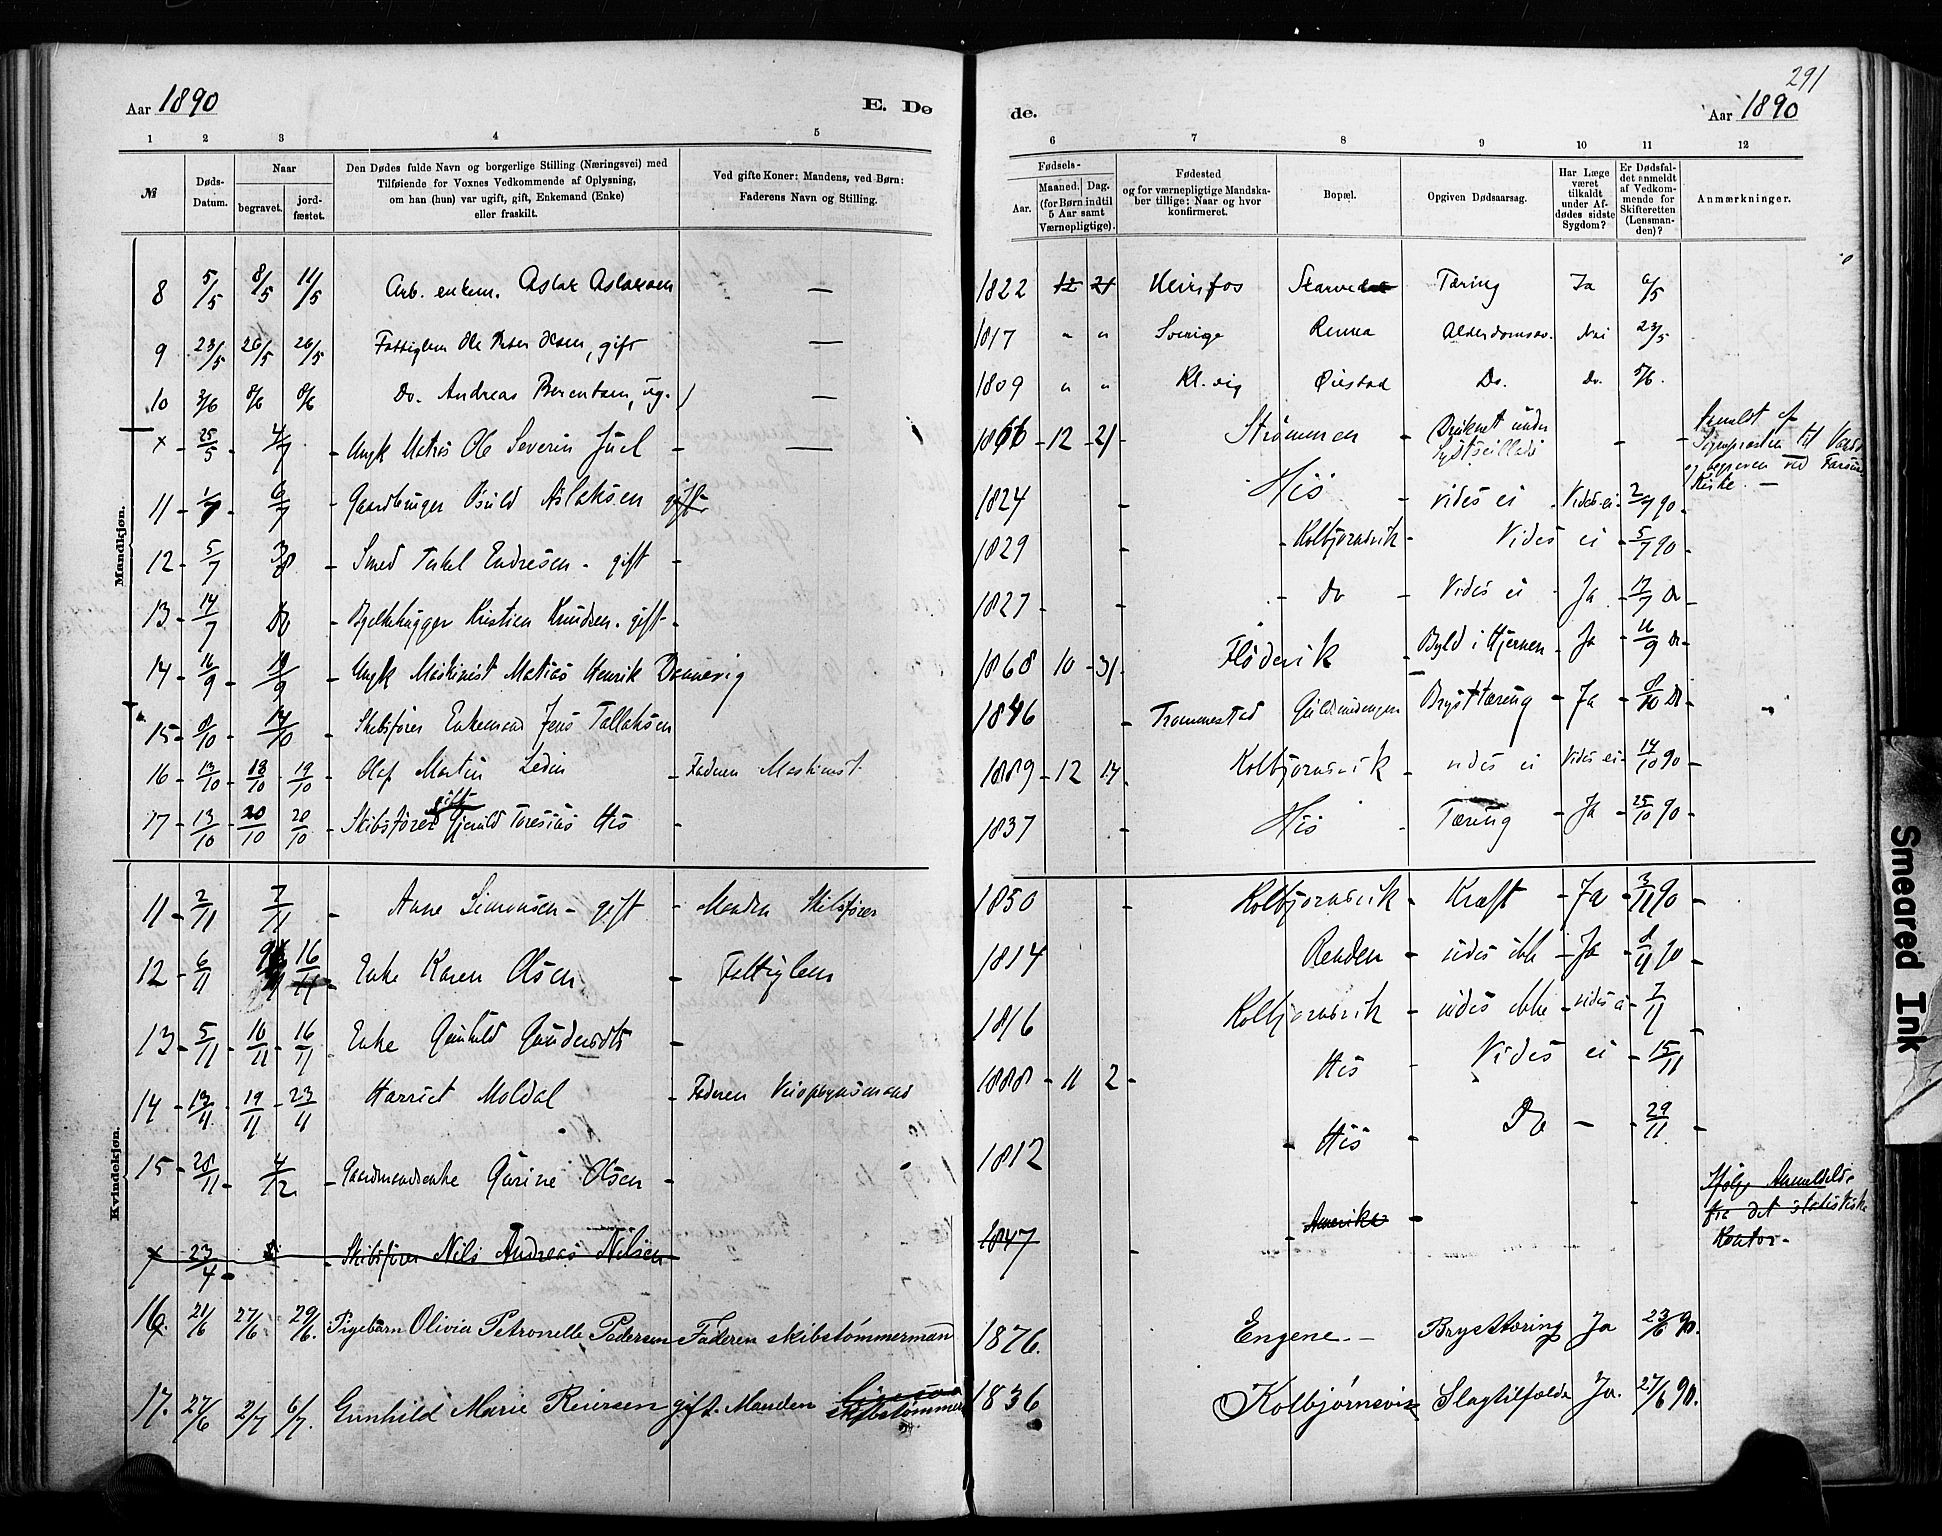 291
Aar 1890 E. Dø de. Aar 1890
1 2 3 4 5 6 7 8 9 10 11 12
№ Døds-Datum. Naar begravet. jord-fæstet. Den Dødes fulde Navn og borgerlige Stilling (Næringsvei) med Tilføiende for Voxnes Vedkommende af Oplysning, om han (hun) var ugift, gift, Enkemand (Enke) eller fraskilt. Ved gifte Koner: Mandens, ved Børn: Faderens Navn og Stilling. Fødsels- Aar. Maaned. Dag. (for Børn indtil 5 Aar samt Værnepligtige). Fødested og for værnepligtige Mandskaber tillige: Naar og hvor konfirmeret. Bopæl. Opgiven Dødsaarsag. Har Læge været tilkaldt under Afdødes sidste Sygdom? Er Dødsfaldet anmeldt af Vedkommende for Skifteretten (Lensmanden)? Anmærkninger.
Mandkjøn.
8 5/5 8/5 11/5 Arb. enkem. Aslak Aslaksen — 1822 12 21 Heirefos Tæring Ja 6/5
9 23/5 26/5 26/5 Fattiglem Ole Peter Olsen, gift — 1817 " " Sverige Renna Alderdomssv. Nei 23/5
10 3/6 8/6 8/6 Do. Andreas Berentsen, ug. — 1809 " " Kl. vig Øiestad Do. Do. 5/6.
x 25/5 4/7 Ungk Matros Ole Severin Juel — 1866 - 12 - 21 Strømmen Druknet under - -
Kirke. —
11 1/7 6/7 Gaardbruger Osuld Aslaksen gift 1824 His vides ei Vides ei 2/7 90
12 5/7 3/8 Smed Terkel Endresen - gift 1829 Kolbjørnsvik Vides ei 5/7 90
13 14/7 Do Bjelkehugger Kristien Knudsen. gift 1827 Do Vides ei Ja 17/7 Do
14 16/9 19/9 Ungk Maskinist Matias Henrik Dannevig 1868 10 31 Flødevik Byld i Hjernen Ja 16/9 Do
15 8/10 14/10 Skibsfører Enkemand Jens Tallaksen 1846 Tromnestad Guldsmidengen Brysttæring Ja 8/10 Do
16 13/10 18/10 19/10 Olaf Martin Ledin Faderen Maskinist 1889 12 14 Kolbjørnsvik vides ei Vides ei 14/10 90
17 13/10 20/10 20/10 Skibsfører gift Gjeruld Toresius His 1837 His Tæring Ja 25/10 90
Kvindekjøn.
11 2/11 7/11 Anne Simonsen - gift Manden Skibsfører 1850 Kolbjørnsvik Kræft Ja 3/11 90
12 6/11 16/11 Enke Karen Olsen Fattiglem 1814 Renden vides ikke Ja 8/11 90
13 5/11 10/11 16/11 Enke Gunhild Gundersdtr 1816 Kolbjørnsvik vides ikke vides ei 7/11
14 13/11 19/11 23/11 Harriet Moldal Faderen Vicopsynsmand 1888 11 2 His Vides ei 15/11
15 28/11 4/12 Gaardmandsenke Gurine Olsen 1812 His Do - 29/11
x 23/4 Skibsfører Nils Andreas Nilsen 1847 Amerika Ifølge Anmeldelse
fra det statistiske
Kontor.
16. 21/6 27/6 29/6. Pigebarn Olivia Petronelle Pedersen Faderen skibstømmermand 1876. Engene. — Brysttæring Ja 23/6 90.
17. 27/6 2/7 6/7. Gunhild Marie Reiersen gift. Manden skibstømmerm 1836 Kolbjørnsvik Slagtilfælde Ja. 27/6 90.
Smeared Ink